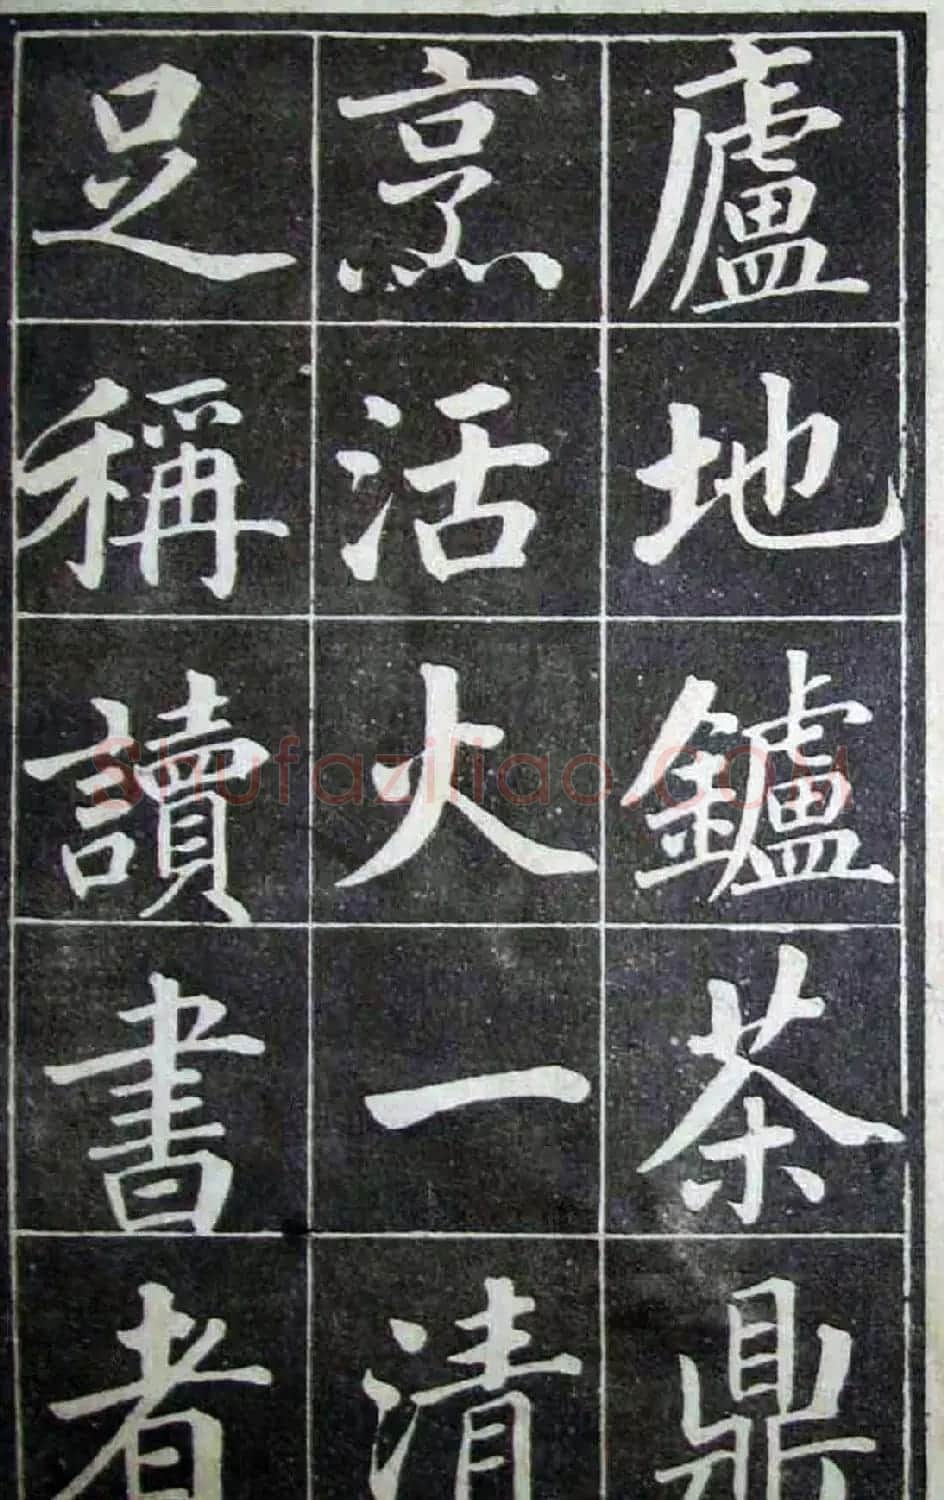 廬地鑪茶鼎
烹活火一清
足稱讀書者
Shufaziliao.com